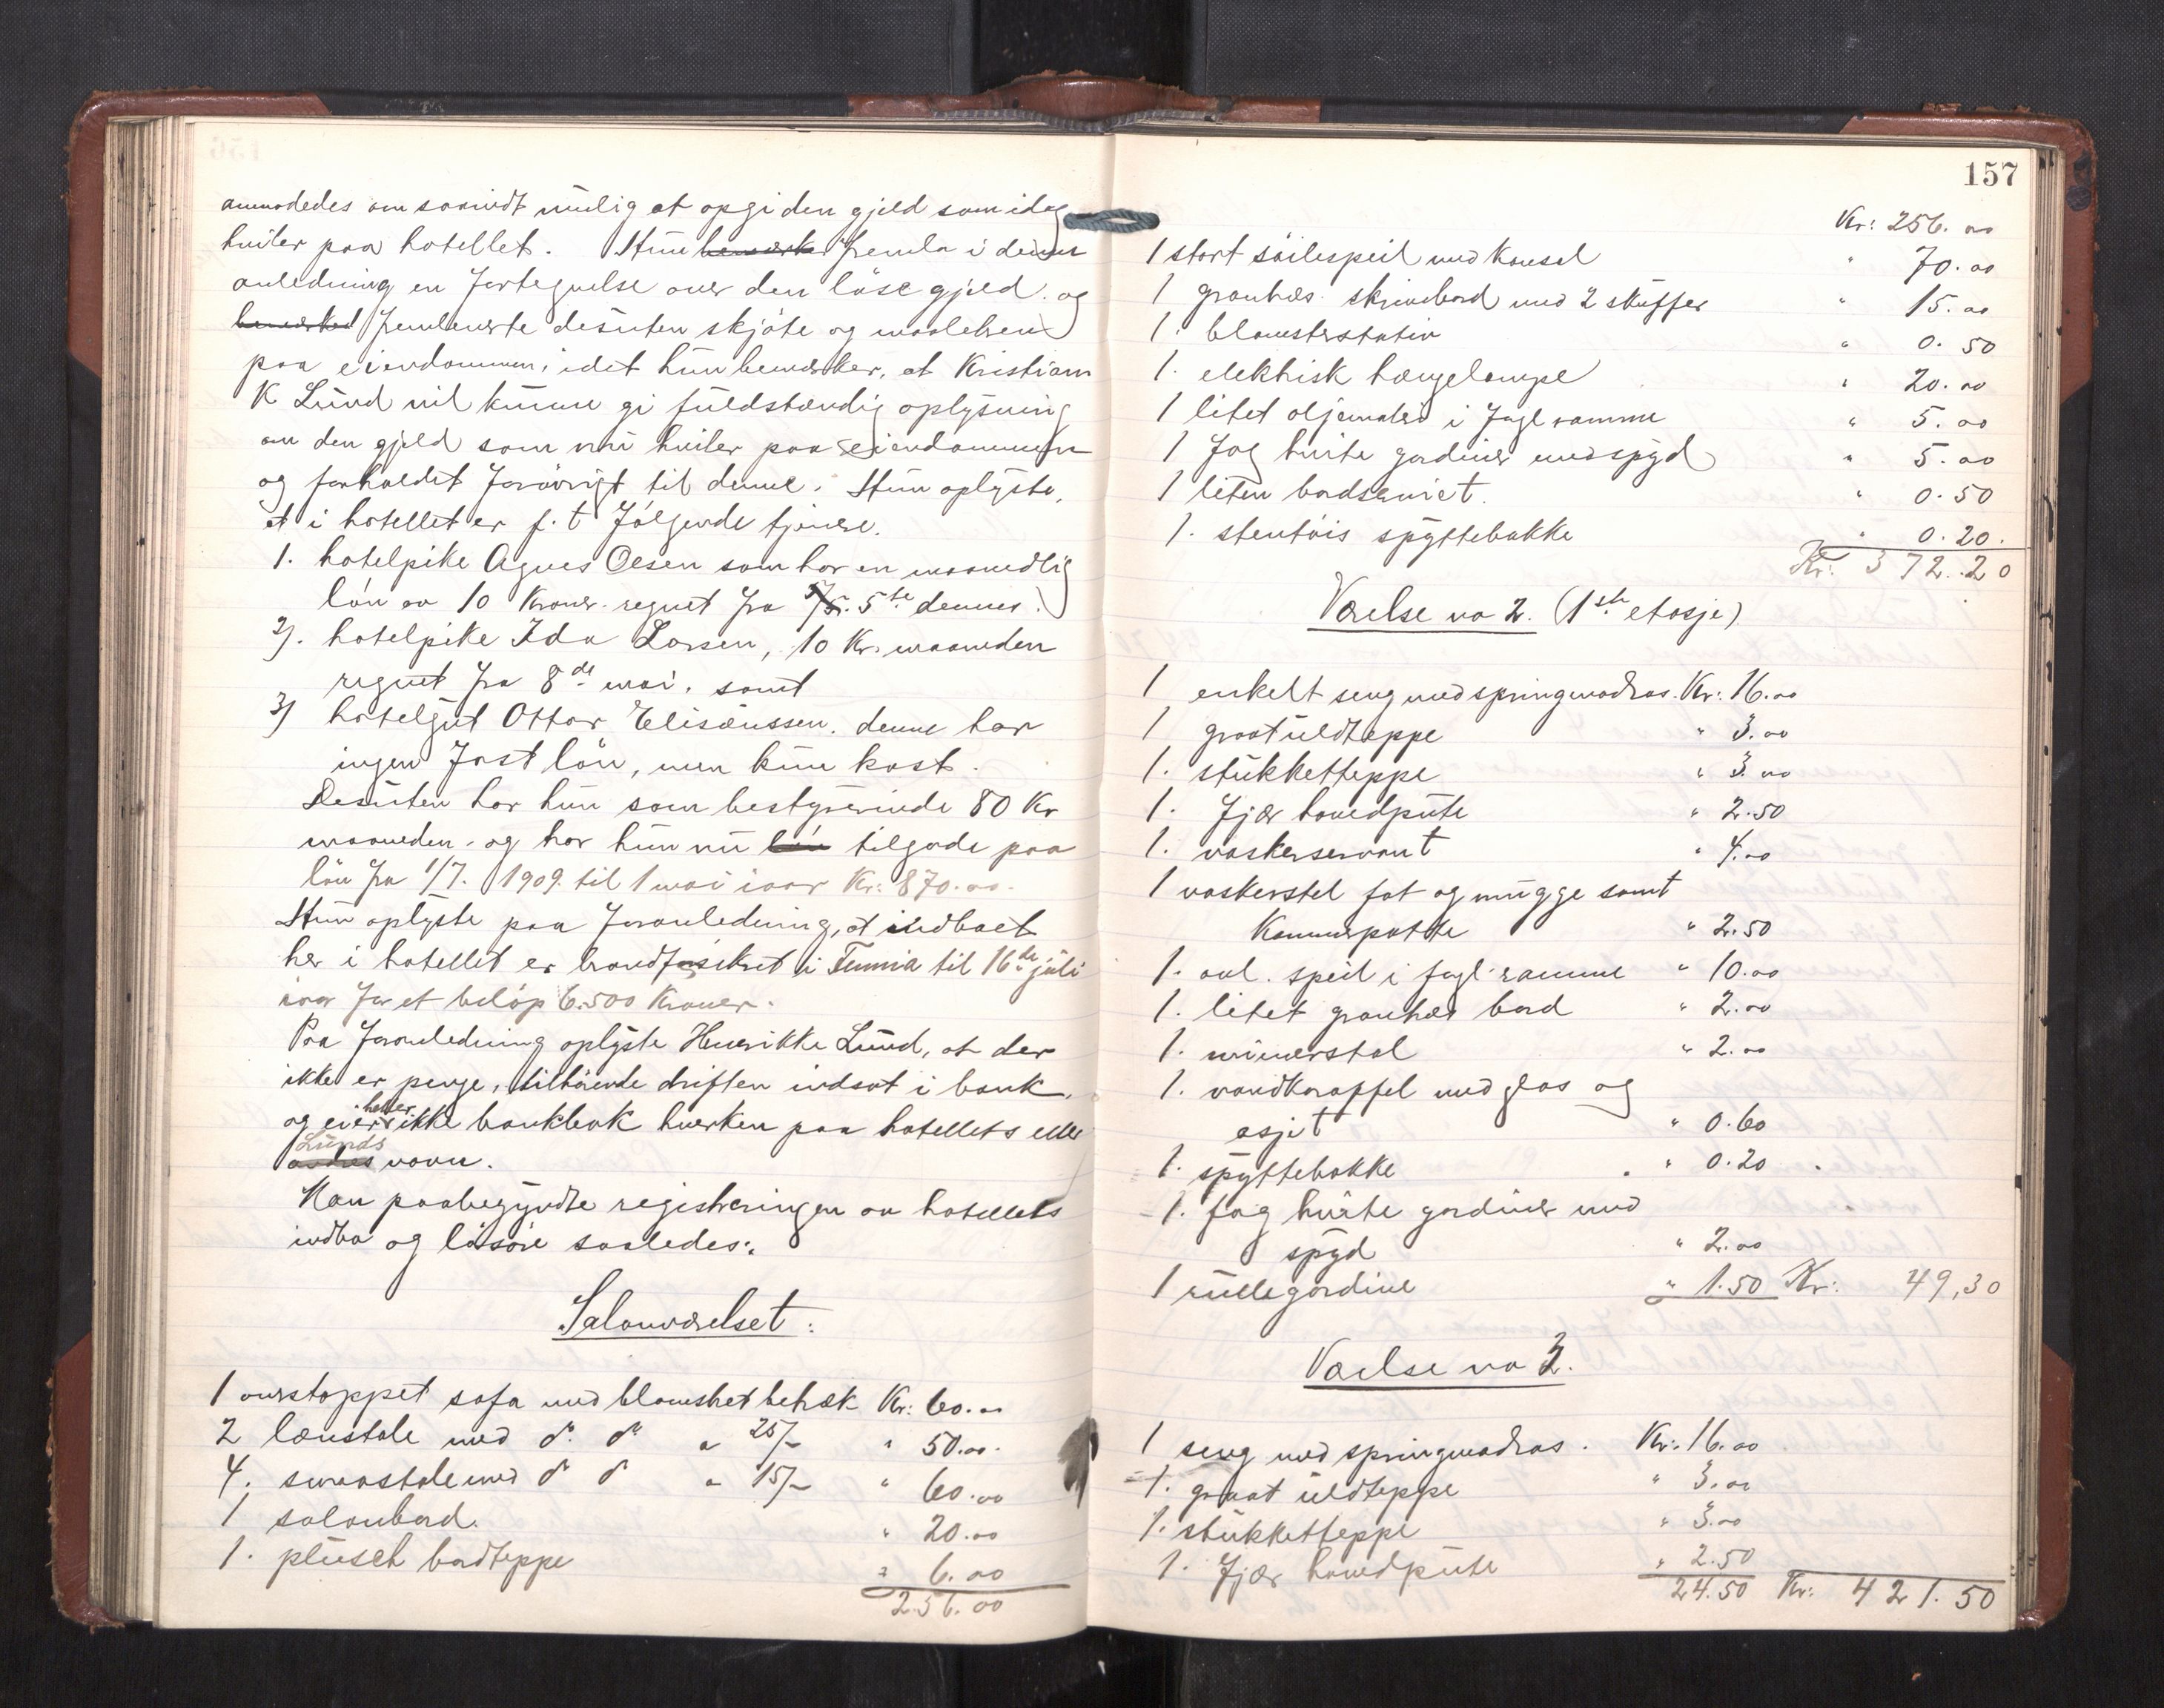 anmodedes om saavidt mulig at opgi den gjeld som idag
hviler paa hotellet. Hun bemærker fremla i denne
anledning en fortegnelse over den løse gjeld og
bemærket fremleverte desuten skjøte og maalebrev
paa eiendommen, idet hun bemærker, at Kristian
K Lund vil kunne gi fuldstændig oplysning
om den gjeld som nu hviler paa eiendommen
og forholdet forøvrigt til denne. Hun oplyste,
at i hotellet er f. t følgende tjenere.
1. hotelpike Agnes Olsen som har en maanedlig
løn av 10 Kroner regnet fra 5te dennes.
2). hotelpike Ida Larsen, 10 Kr. maaneden
regnet fra 8de mai. samt
3) hotelgut Ottar Eliseussen. denne har
ingen fast løn, men kun kost.
Desuten har hun som bestyrerinde 80 Kr
maaneden. og har hun nu løn tilgode paa
løn fra 1/7. 1909 til 1 mai iaar Kr: 870.00.
Hun oplyste paa foranledning, at indboet
her i hotellet er brandforsikret i Fumia til 16de juli
iaar for et beløp 6.500 Kroner.
Paa foranledning oplyste Henrikke Lund, at der
ikke er penge, tilhørende driften indsat i bank,
og eier heller ikke bankbok hverken paa hotellets eller
Lunds
andres navn.
Man paabegyndte registreringen av hotellets
indbo og løsøre saaledes:
Salonværelset:
1 overstoppet sofa med blomstret betræk Kr: 60.00
2 lænstole med do. do. a 25/- " 50.00.
4. smaastole med do do a 15/- " 60.00
1 salonbord. " 20.00
1. plüsch bordteppe " 6.00
256.00
157
Kr: 256.00
1 stort søilespeil med Konsol " 70.00
1 granhæs skrivebord med 2 skuffer " 15.00
1. blomsterstativ " 0.50
1. elektrisk hængelampe " 20.00
1 litet oljemaleri i fagl ramme " 5.00
1 fag hvite gardiner med spyd " 5.00
1 liten bordserviet. " 0.50
1. stentøis spyttebakke " 0.20.
Kr: 372.20
Værelse no 2. (1ste etasje)
1 enkelt seng med springmadras. Kr: 16.00
1 graat uldteppe " 3.00
1. stukketteppe " 3.00
1. fjær hovedpute " 2.50
1. vaskerservant " 4.00
1 vaskerstel fat og mugge samt
Kammerpotte " 2.50
1. avl. speil i fagl. ramme " 10.00
1. litet granhæs bord " 2.00
1. wienerstol " 2.00
1. vandkaraffel med glas og
asjet " 0.60
1. spyttebakke " 0.20
1. fag hvite gardiner med
spyd " 2.00
1 rullegardine " 1.50 Kr: 49,30
Værelse no 3.
1 seng med springmadras. Kr: 16.00
1. graat uldteppe " 3.00
1. stukketteppe " 3.00
1. fjær hovedpute " 2.50
24.50 Kr: 421.50